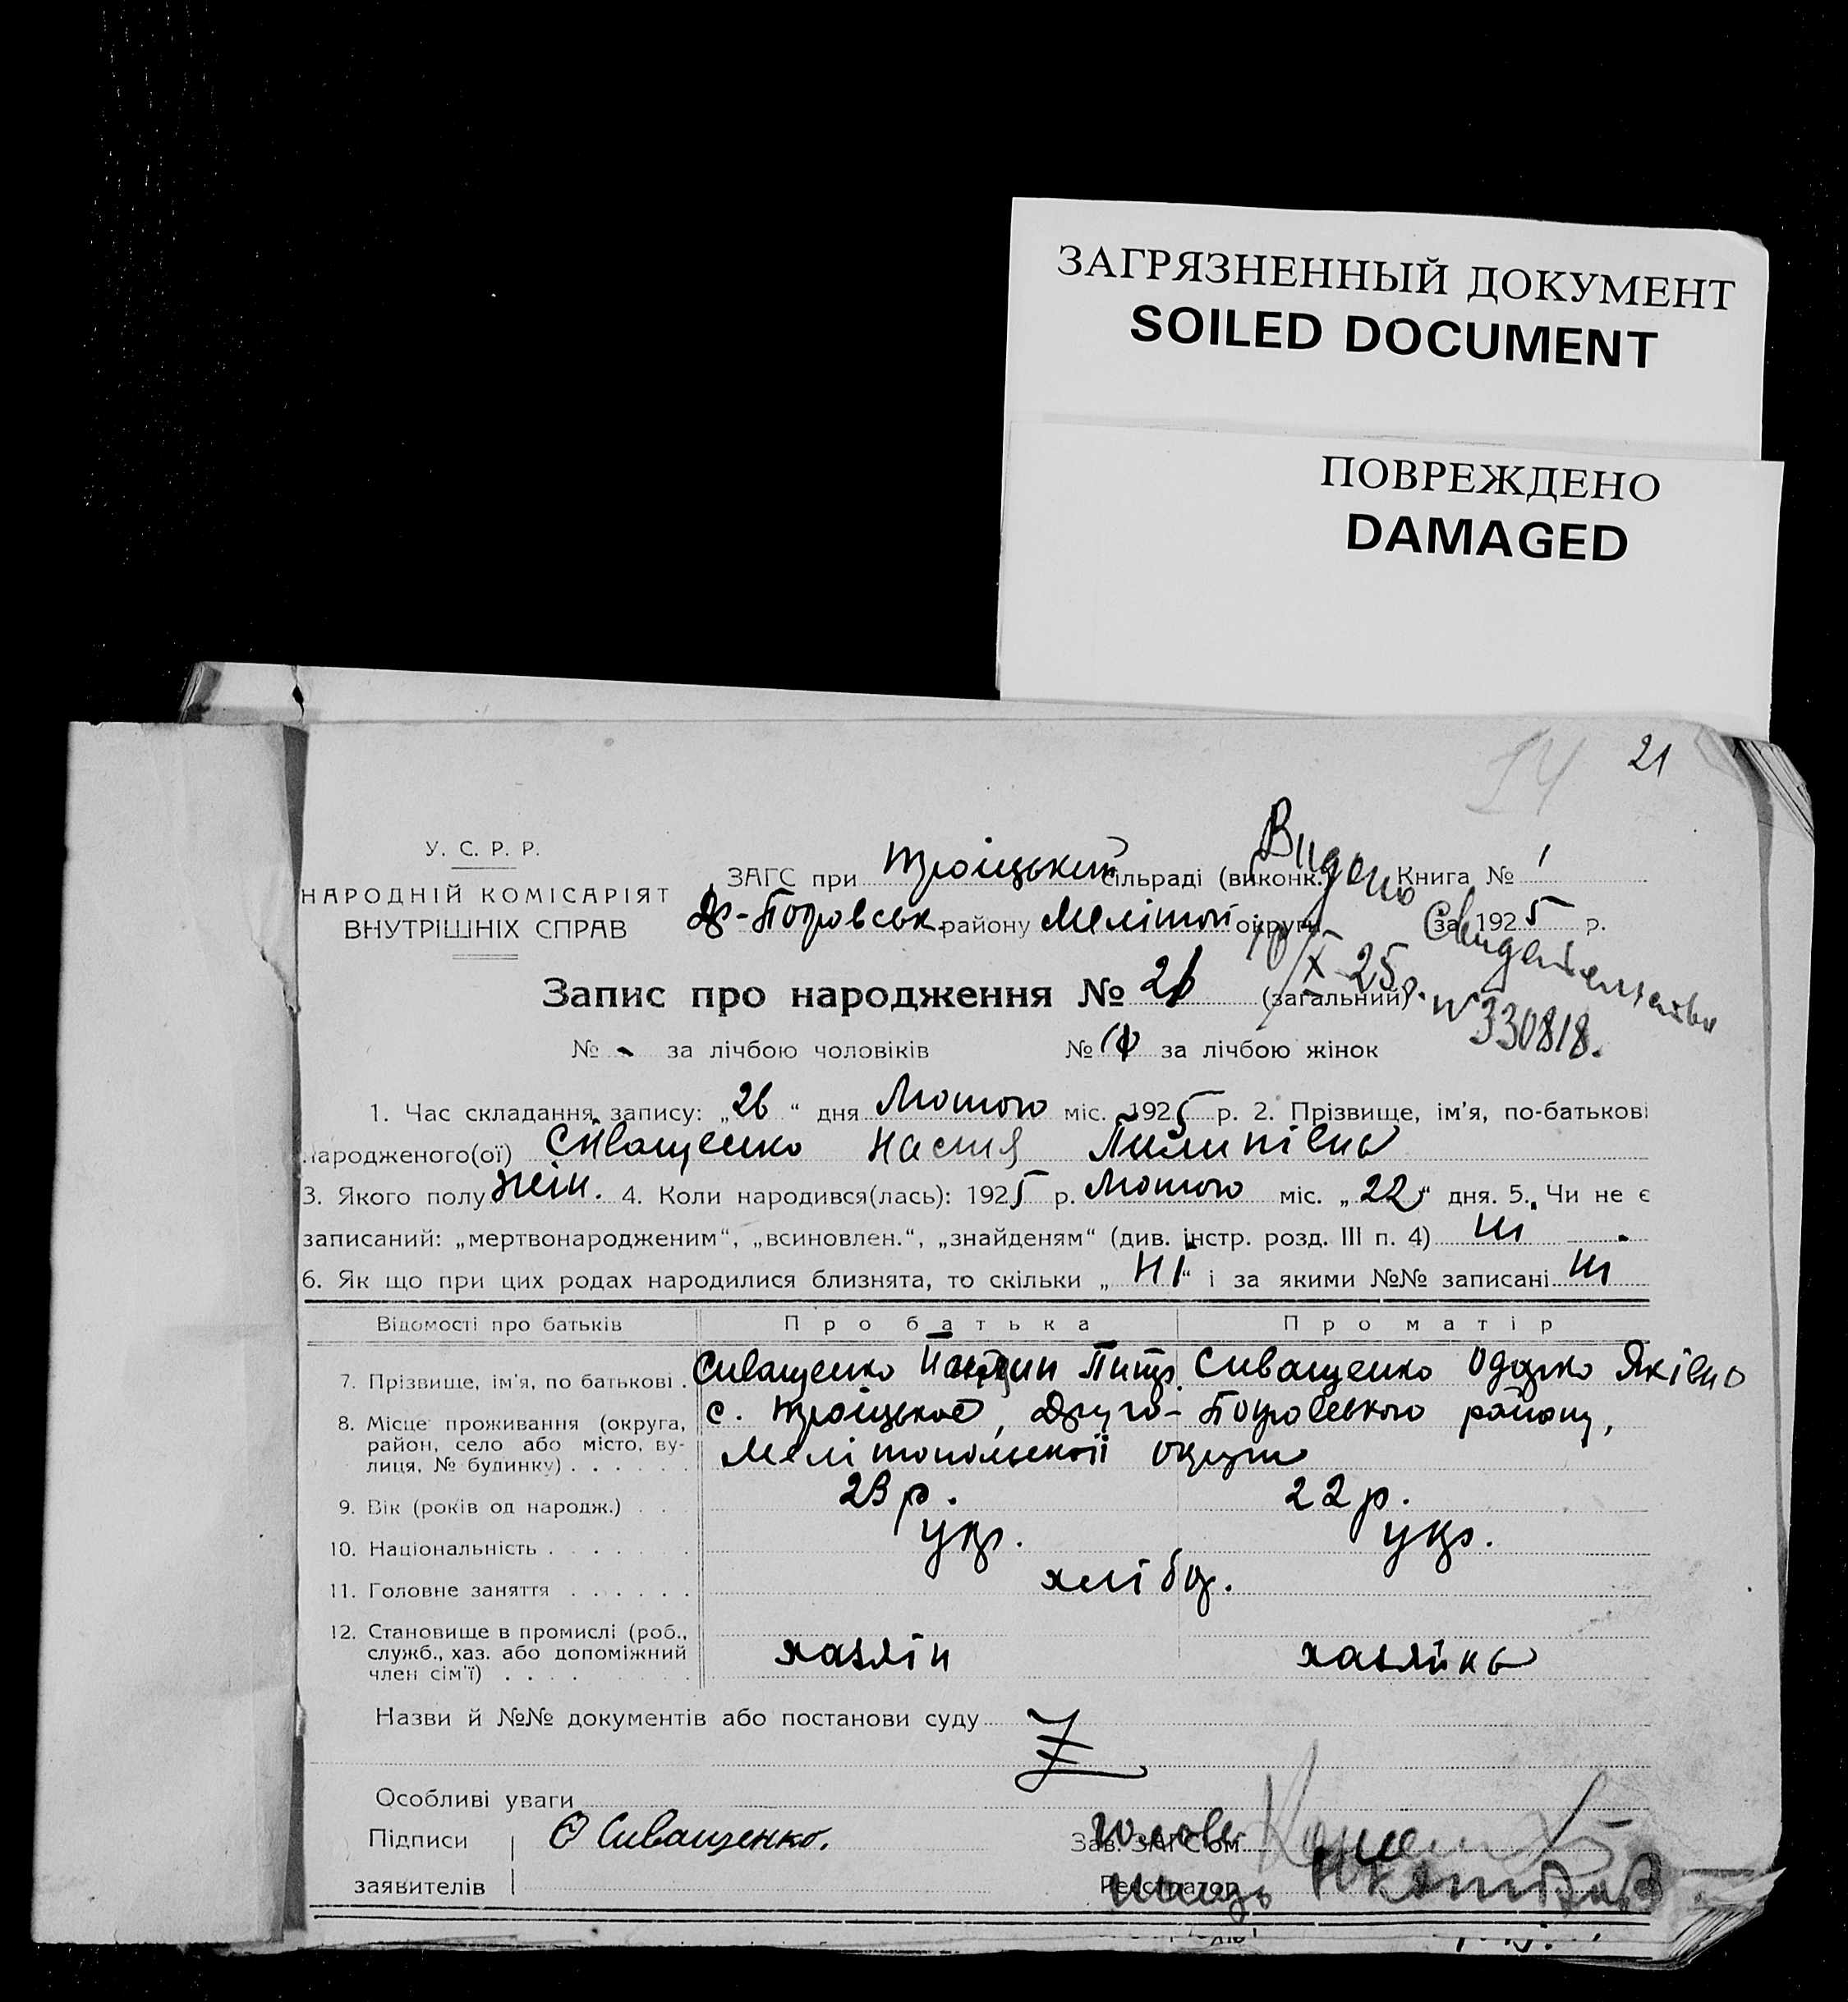 ЗАГРЯЗНЕННЫЙ ДОКУМЕНТ
SOILED DOCUMENT
ПОВРЕЖДЕНО
DAMAGED
14 21
У. С. Р. Р.
НАРОДНІЙ КОМІСАРІЯТ
ВНУТРІШНІХ СПРАВ
ЗАГС при Троїцький сільраді (виконк.) Книга № 1
Др-Покровськ. району Мелітоп округи за 1925 р.
Видано
Свидетельство
10/X-25р. №330818.
Запис про народження № 21 (загальний)
№ - за лічбою чоловіків № за лічбою жінок
1. Час складання запису: „26“ дня Лютого міс. 1925 р. 2. Прізвище, ім'я, по-батькові
народженого(ої) Сиващенко Настя Пилипівна
3. Якого полу жін. 4. Коли народився(лась): 1925 р. Лютого міс. „22“ дня. 5. Чи не є
записаний: „мертвонародженим“, „всиновлен.“, „знайденям“ (див. інстр. розд. III п. 4) ні
6. Як що при цих родах народилися близнята, то скільки „ні“ і за якими №№ записані ні
Відомості про батьків Про батька Про матір
7. Прізвище, ім'я, по батькові . Сиващенко Петр. Сиващенко Одарка Яківна
8. Місце проживання (округа, с. Троїцьке, Друго-Покровського району,
район, село або місто, ву- Мелітопольскої округи
лиця, № будинку) . . . . . .
9. Вік (років од народж.) . . 23 р. 22 р.
10. Національність . . . . . . укр. укр.
11. Головне заняття . . . . . . хлібор.
12. Становище в промислі (роб.,
служб., хаз. або допоміжний хазяїн хазяйка
член сім'ї) . . . .
Назви й №№ документів або постанови суду
Особливі уваги
Підписи Сиващенко. Зав. ЗАГС'ом Голова
заявителів Реєстратор